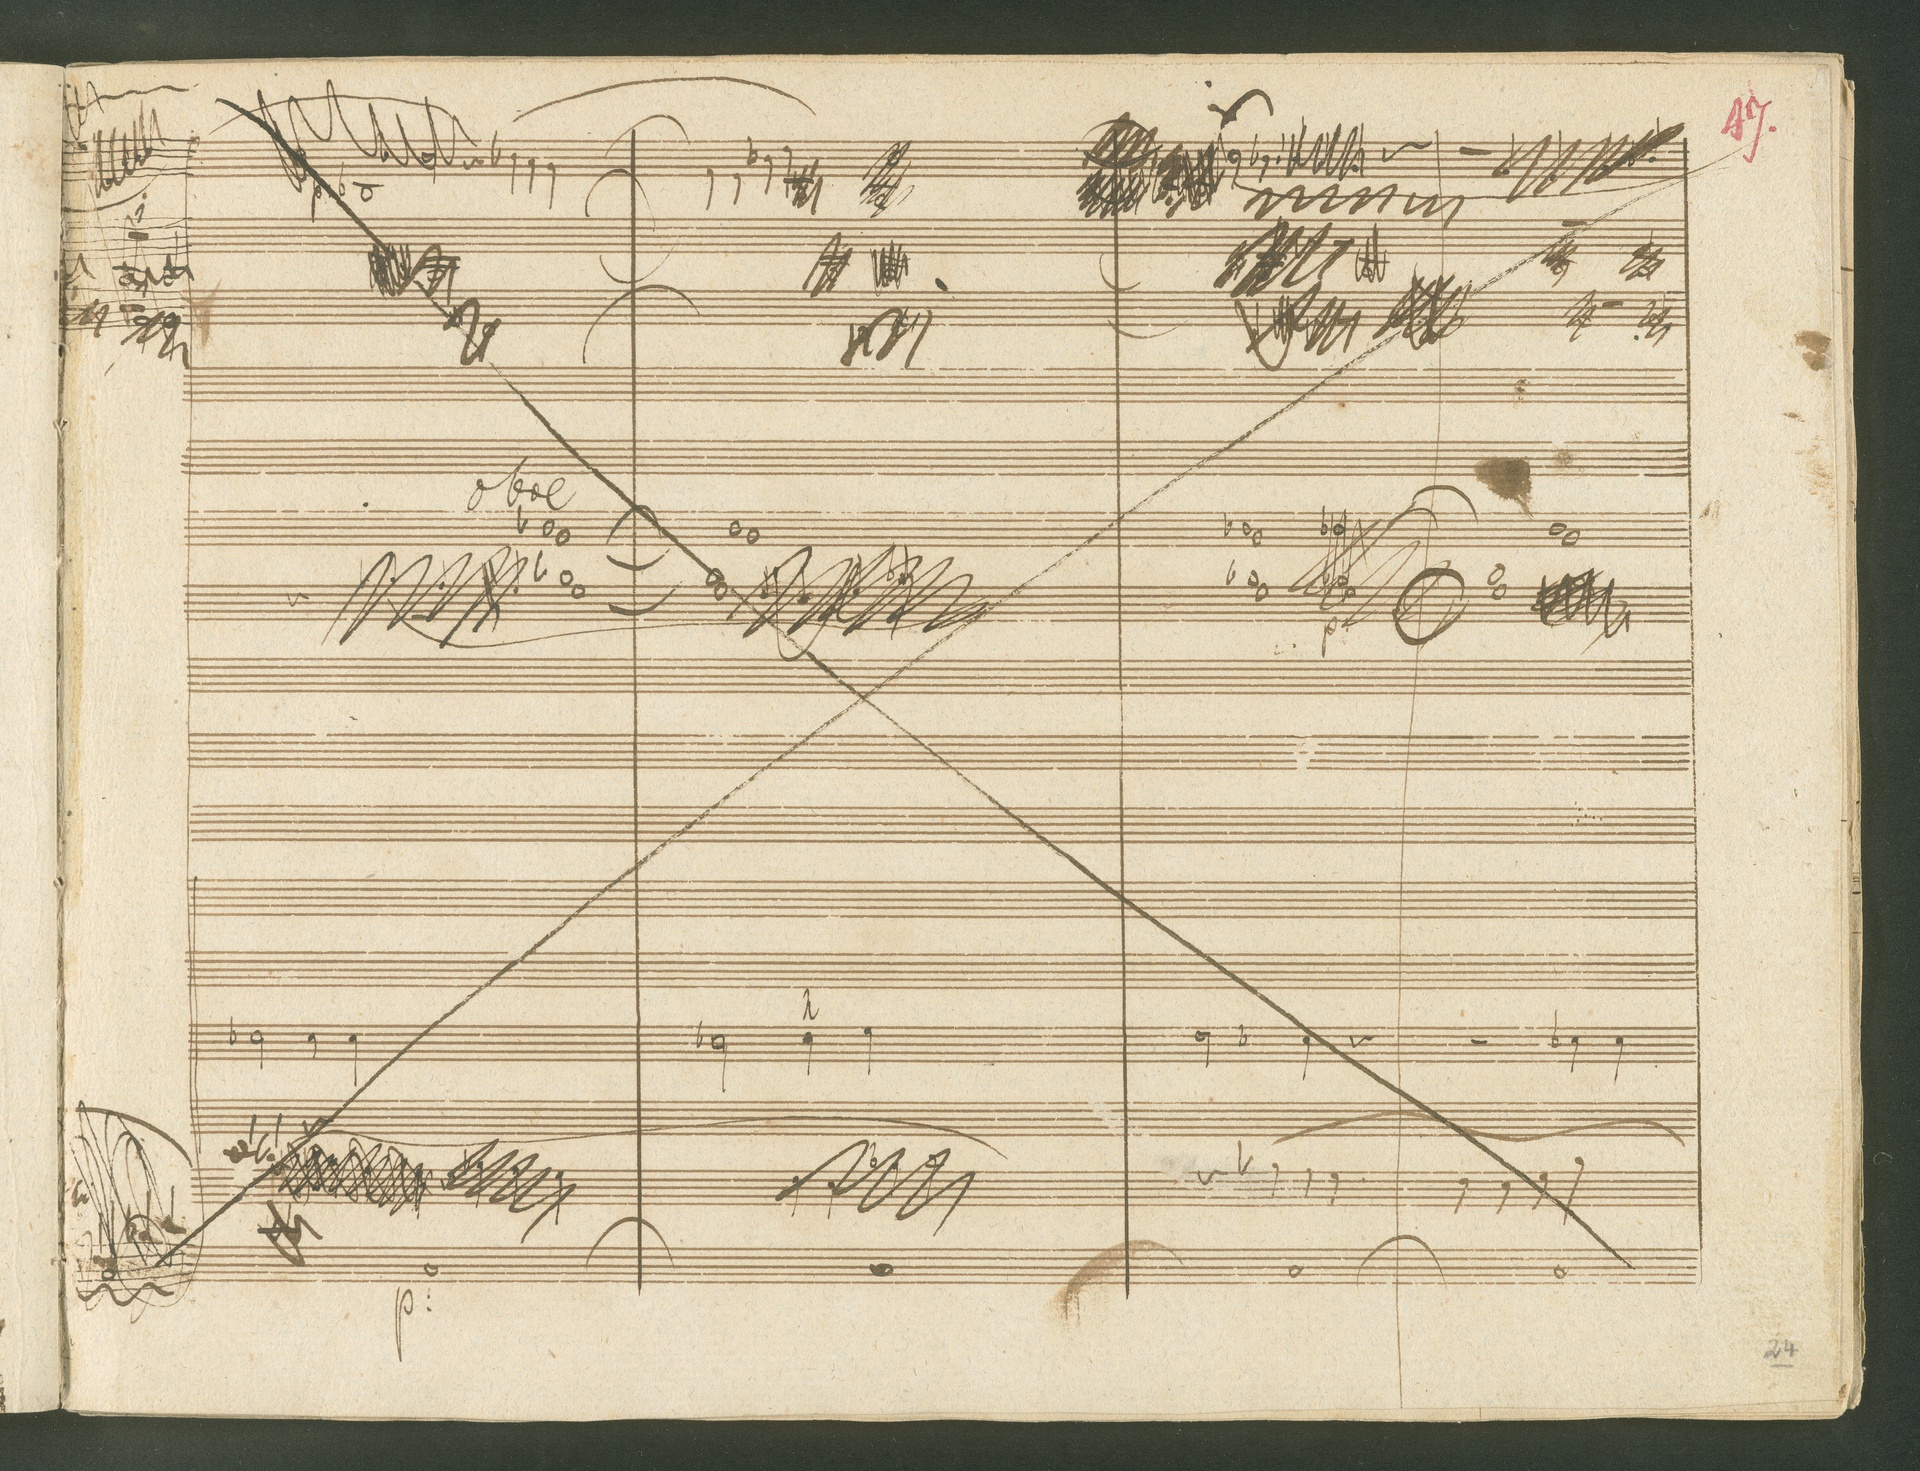 47.
oboe
p:
p:
24